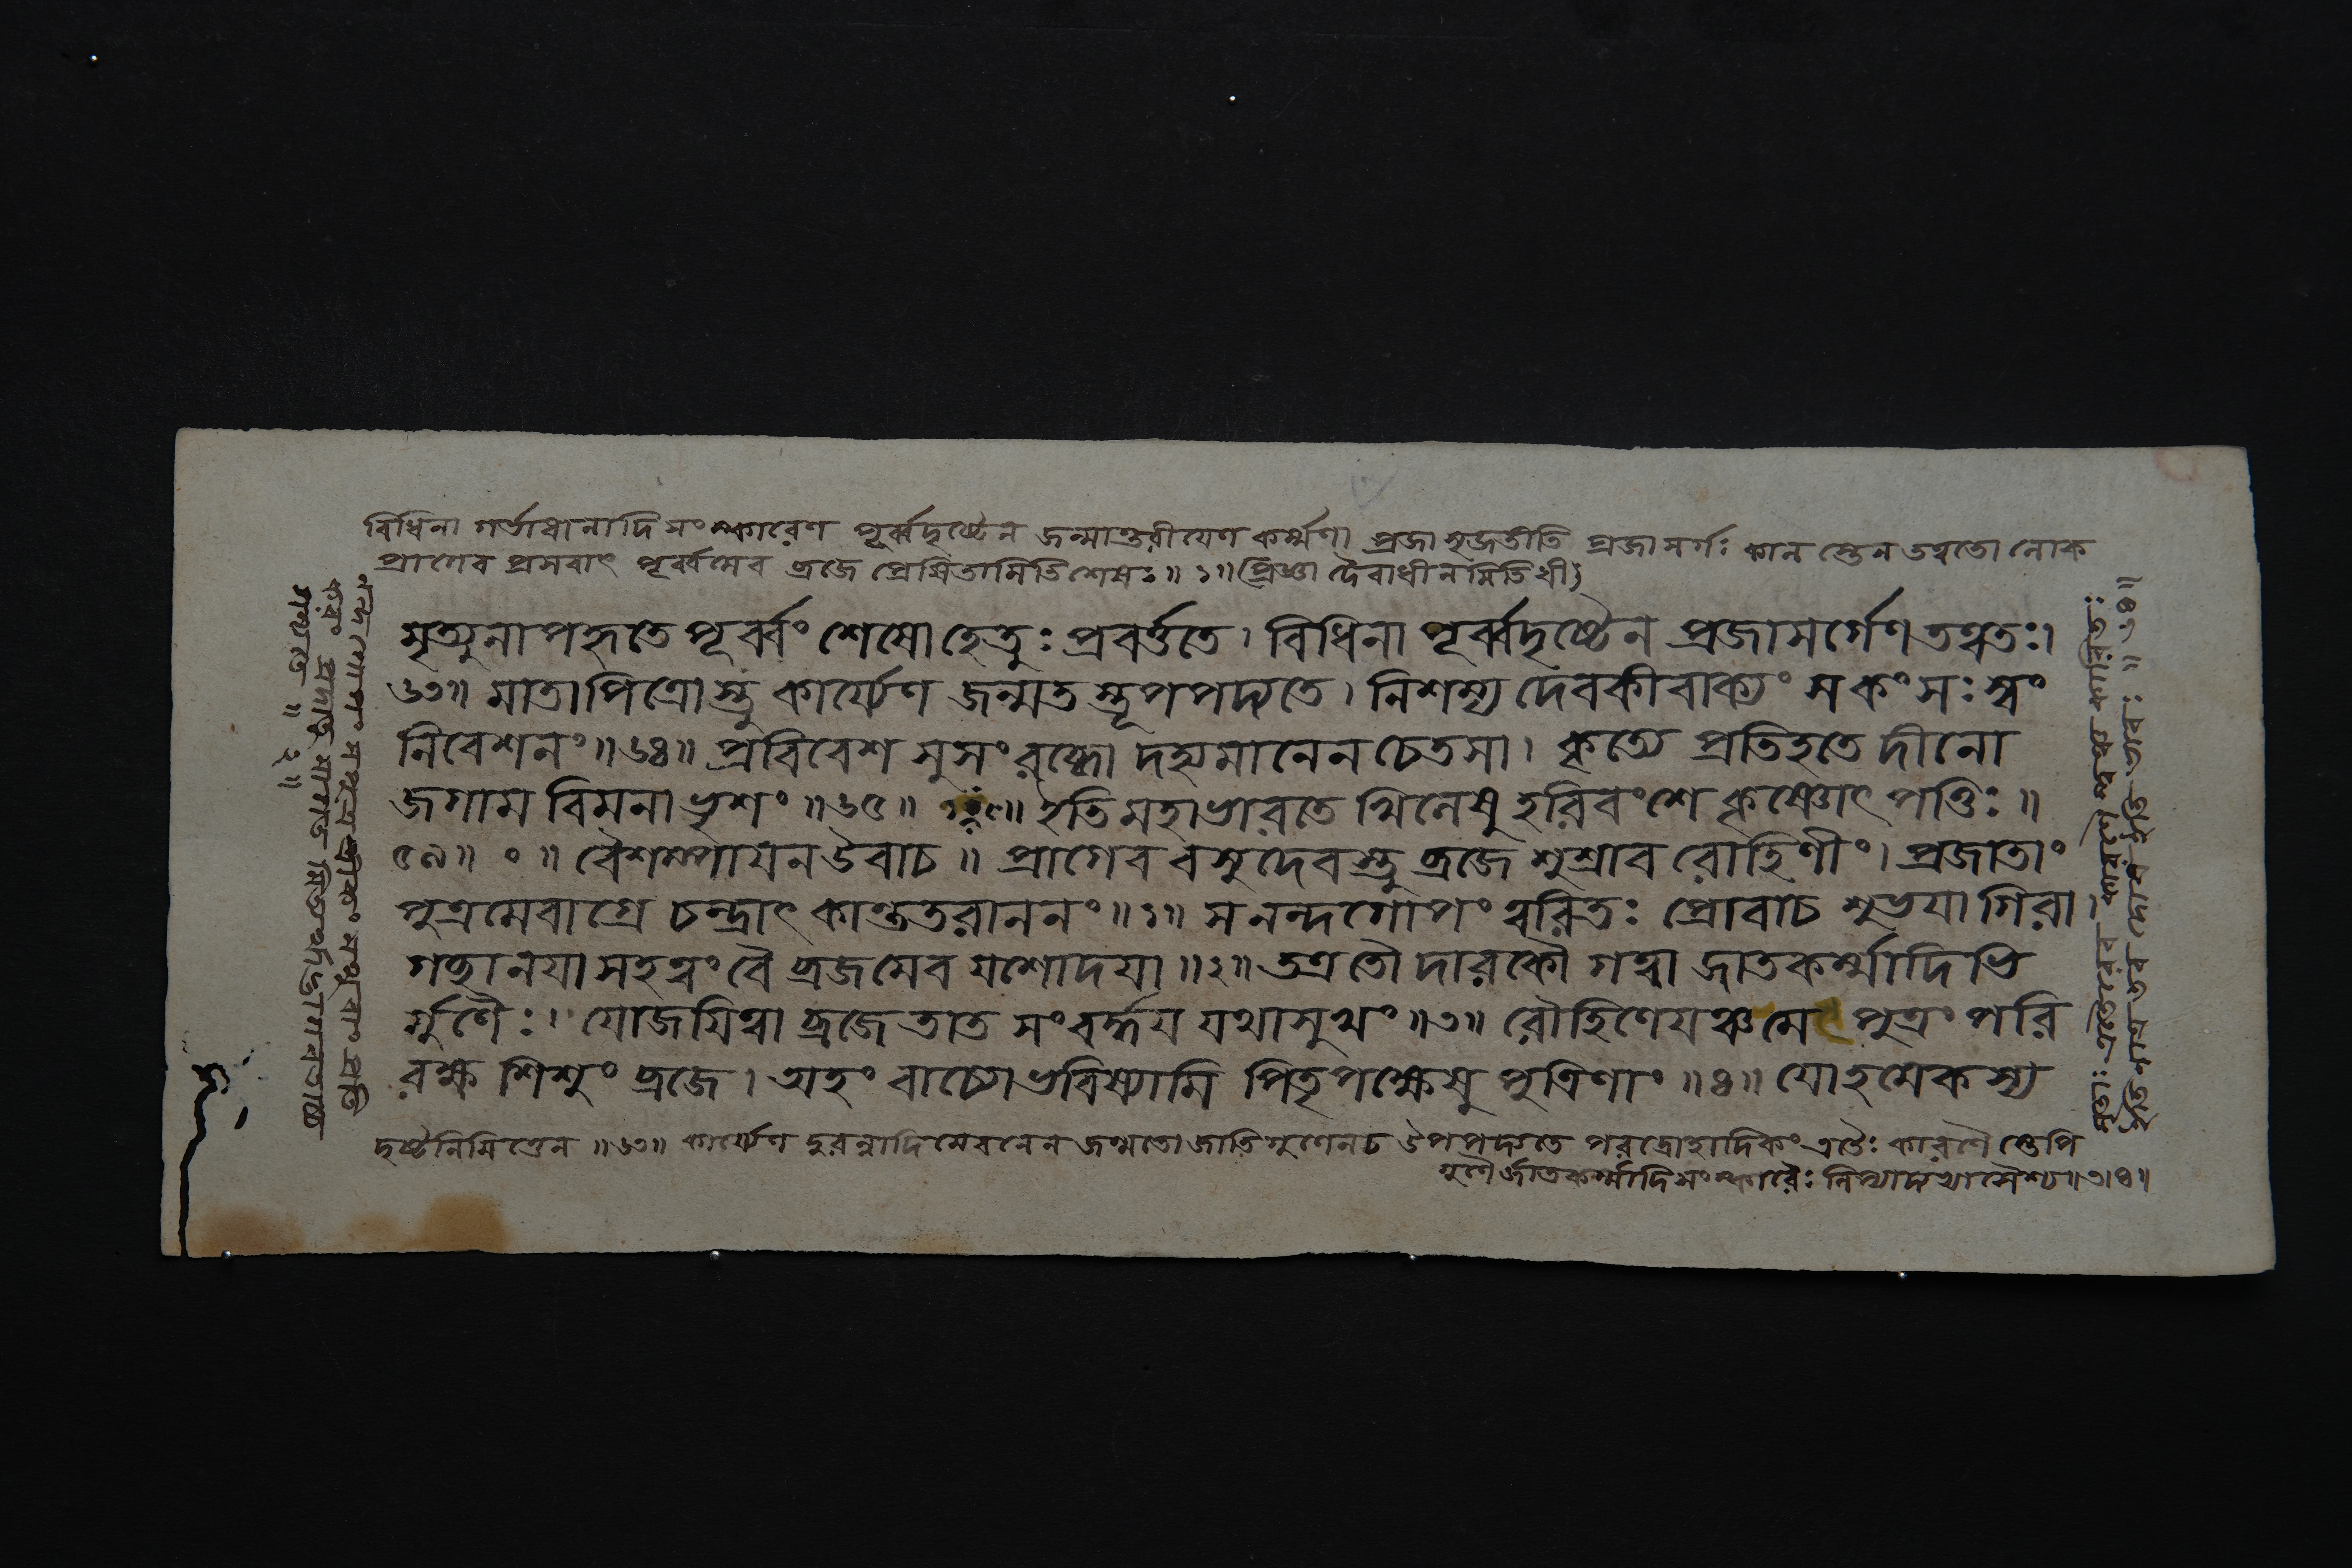 বিধিনা গর্ভাধানাদিসংস্কারেণ পূর্ব্বদৃষ্টেন জন্মান্তরীয়েণ কর্ম্মণা প্রজাসৃজতীতি প্রজাসর্গঃ কাল স্তেন তত্বতো লোক
প্রাগেব প্রসবাৎ পূর্ব্বমেব ব্রজে প্রেষিতামিতিশেষঃ॥ ১॥
মৃত্যুনাপহৃতে পূর্ব্বং শেষো হেতুঃ প্রবর্ত্ততে। বিধিনা পূর্ব্বদৃষ্টেন প্রজাসর্গেণ তত্বতঃ।
৬৩॥ মাতাপিত্রোস্তু কার্য্যেণ জন্মত স্তূপপদ্যতে। নিশম্য দেবকীবাক্যং স কংসঃ স্বং
নিবেশনং॥৬৪॥ প্রবিবেশ সুসংরব্ধো দহ্যমানেন চেতসা। কৃত্যে প্রতিহতে দীনো
জগাম বিমনা ভৃশং॥৬৫॥ ইতি মহাভারতে খিলেষু হরিবংশে কৃষ্ণোৎপত্তিঃ॥
৫৯॥ ০॥ বৈশম্পায়ন উবাচ॥ প্রাগেব বসুদেবস্তু ব্রজে শুশ্রাব রোহিণীং। প্রজাতাং
পুত্রমেবাগ্রে চন্দ্রাৎ কান্ততরাননং॥১॥ স নন্দগোপং ত্বরিতঃ প্রোবাচ শুভয়া গিরা।
গচ্ছানয়া সহ ত্বং বৈ ব্রজমেব যশোদয়া॥২॥ তত্র তৌ দারকৌ গত্বা জাতকর্ম্মাদিভি
র্গুণৈঃ। যোজয়িত্বা ব্রজে তাত সংবর্দ্ধয় যথাসুখং॥৩॥ রৌহিণেয়ঞ্চ মে পুত্রং পরি
রক্ষ শিশুং ব্রজে। অহং বাচ্যো ভবিষ্যামি পিতৃপক্ষেষু পুত্রিণাং॥৪॥ যোহমেকস্য
দৃষ্টনিমিত্তেন॥৬৩॥ কার্য্যেণ দুরন্নাদিসেবনেন জন্মতো জাতিগুণেন চ উপপদ্যতে পরদ্রোহাদিকং এতৈঃ কারণৈ স্তেপি
গুণৈর্জাতকর্ম্মাদিসংস্কারৈঃ